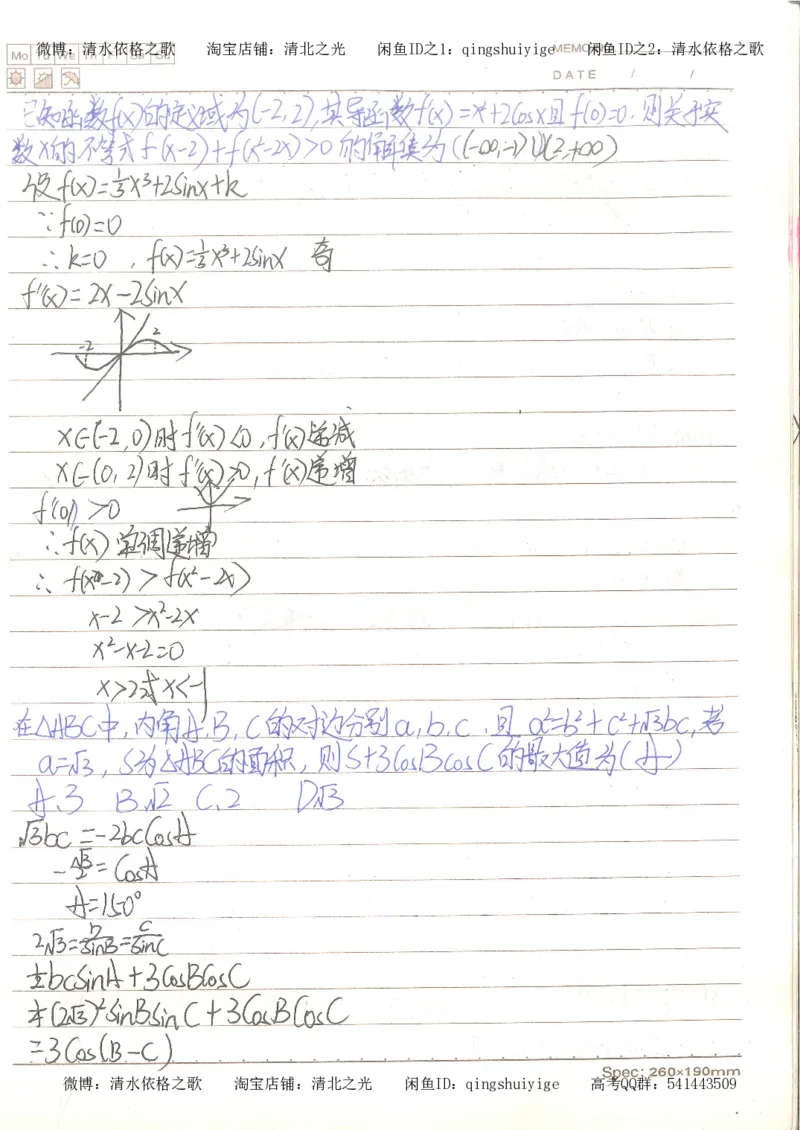 微博：清水依格之歌 淘宝店铺：清北之光 闲鱼ID之1：qingshuiyige 闲鱼ID之2：清水依格之歌
Mo Tu We Th Fr Sa Su MEMO
DATE / /
已知函数f(x)的定义域为(-2,2),其导函数f'(x)=x²+2cosx且f(0)=0.则关于实
数x的不等式f(x-2)+f(x²-2x)>0的解集为((-∞,-1)∪(2,+∞)
设f(x)=⅓x³+2sinx+k
∵f(0)=0
∴k=0 , f(x)=⅓x³+2sinx 奇
f''(x)=2x-2sinx
-2 2
x∈(-2,0)时f''(x)<0,f'(x)递减
x∈(0,2)时f''(x)>0,f'(x)递增
f'(0)>0
∴f(x)单调递增
∴f(x-2)>f(x²-2x)
x-2>x²-2x
x²-x-2=0
x>2或x<-1
在△ABC中,内角A,B,C的对边分别a,b,c.且a²=b²+c²+√3bc,若
a=√3,S为△ABC的面积,则S+3cosBcosC的最大值为(A)
A.3 B.√2 C.2 D√3
√3bc=-2bccosA
-√3/2=cosA
A=150°
2√3=b/sinB=c/sinC
½bcsinA+3cosBcosC
¼(2√3)²sinBsinC+3cosBcosC
=3cos(B-C)
Spec: 260×190mm
微博：清水依格之歌 淘宝店铺：清北之光 闲鱼ID：qingshuiyige 高考QQ群：541443509